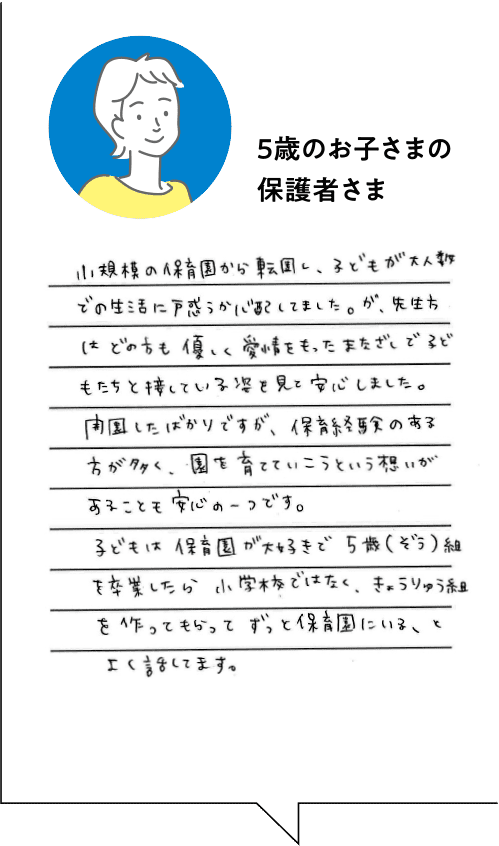 5歳のお子さまの
保護者さま
小規模の保育園から転園し、子どもが大人数
での生活に戸惑うか心配してました。が、先生方
は どの方も 優しく 愛情をもったまなざしで 子ど
もたちと 接している姿を見て 安心しました。
開園したばかりですが、保育経験のある
方が多く、園を育てていこうという想いが
あることも 安心の一つです。
子どもは 保育園が大好きで 5歳(ぞう)組
を卒業したら 小学校ではなく、きょうりゅう組
を 作ってもらって ずっと保育園にいる、と
よく話してます。